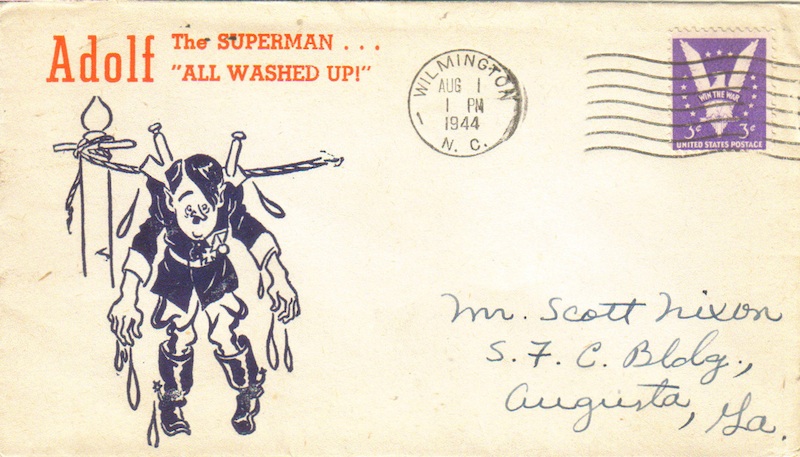 Adolf The SUPERMAN . . .
"ALL WASHED UP!"
WILMINGTON
AUG 1
1 PM
1944
N. C.
WIN THE WAR
3¢ 3¢
UNITED STATES POSTAGE
Mr. Scott Nixon
S. F. C. Bldg.,
Augusta, Ga.